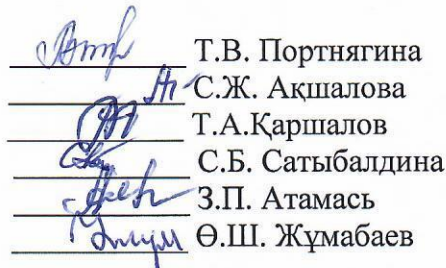 Т.В. Портнягина
С.Ж. Ақшалова
Т.А.Қаршалов
С.Б. Сатыбалдина
З.П. Атамась
Ө.Ш. Жұмабаев